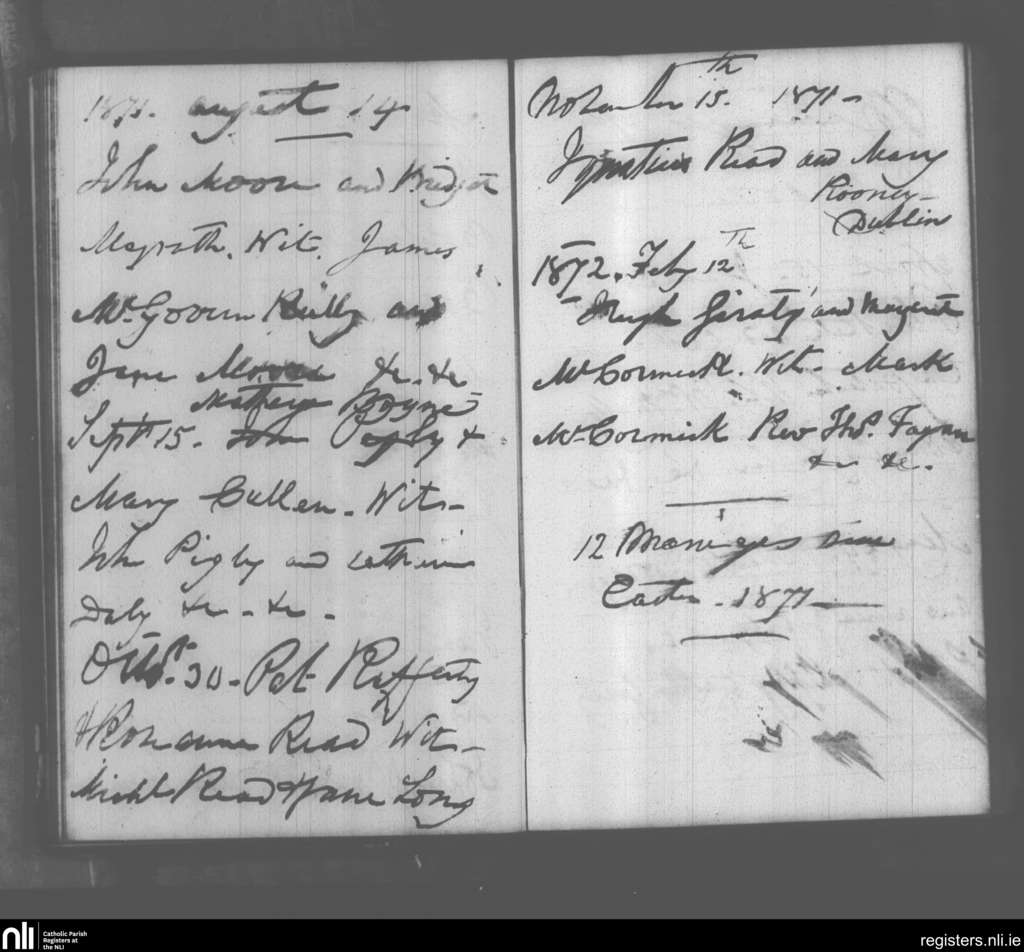 1871. August 14
John Moore and Bridget
Magrath. Wit. James
McGovern Reilly and
Jane &c. &c
Boyne
Septr 15. John Pigby &
Mary Cullen. Wits-
John Pigby and Catherine
Daly &c - &c -
Octbr. 30 - Pat Rafferty
& Roseanne Read Wits-
Michl Read & Jane Long
November 15th. 1871 -
Ignatius Read and Mary
Rooney-
Dublin
1872. Feby 12th
Hugh Geraty and Margaret
McCormick. Wit- Mark
McCormick Rev Ths. Fagan
&c &c.
12 Marriages since
Easter. 1871
nli
Catholic Parish
Registers at
the NLI
registers.nli.ie